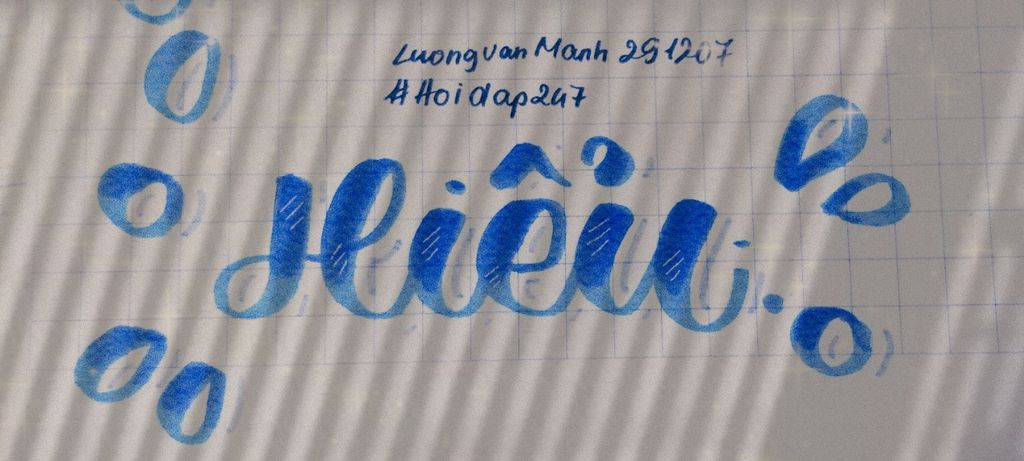 LuongVanManh 291207
#Hoidap247
Hiểu.